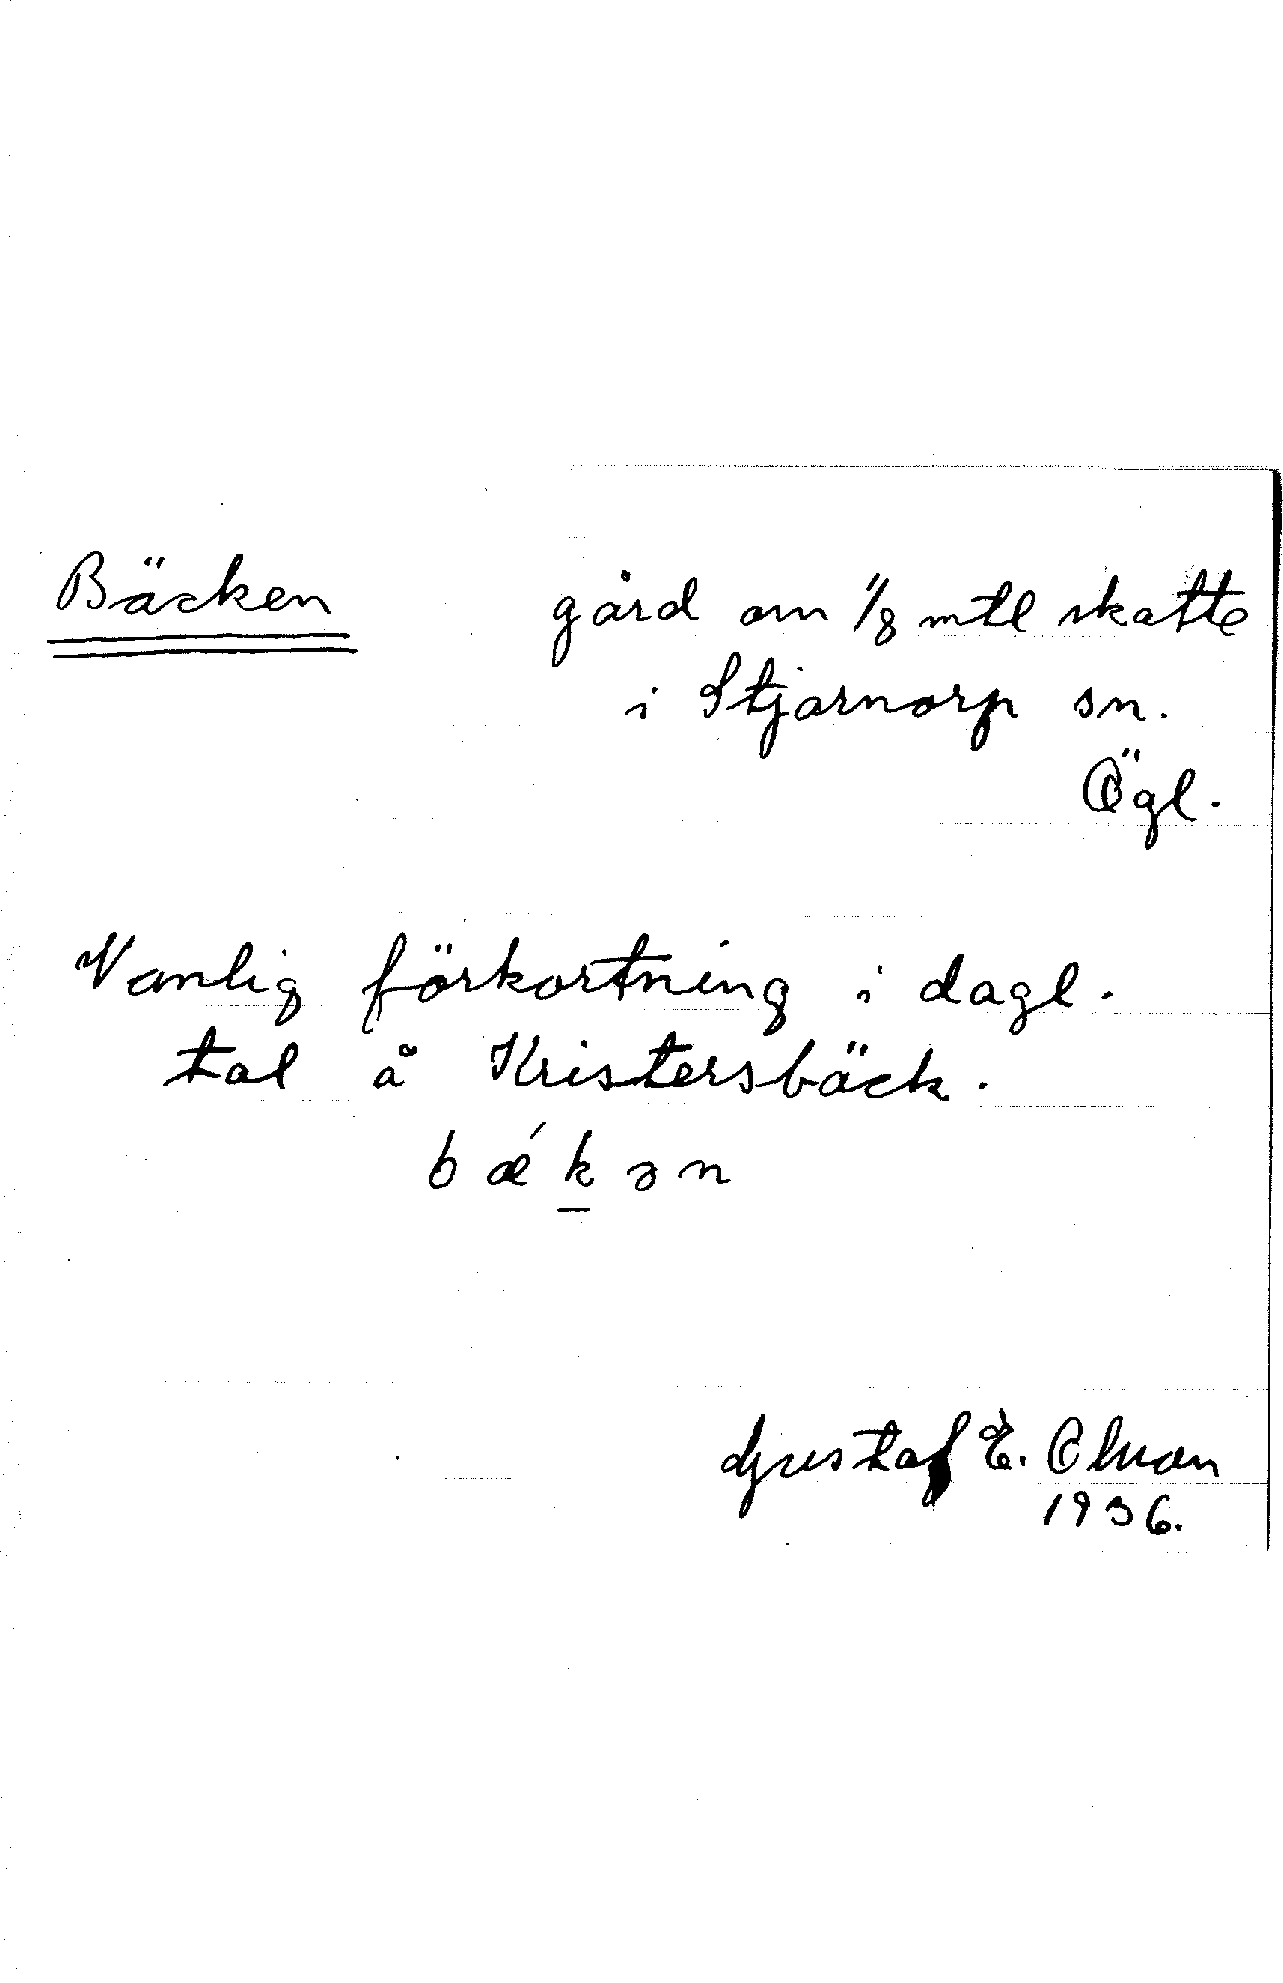 Bäcken gård om 1/8 mtl skatte
i Stjarnorp sn.
Ögl.
Vanlig förkortning i dagl.
tal å Kristersbäck.
bǽk̲ən
Gustaf E. Olsson
1936.